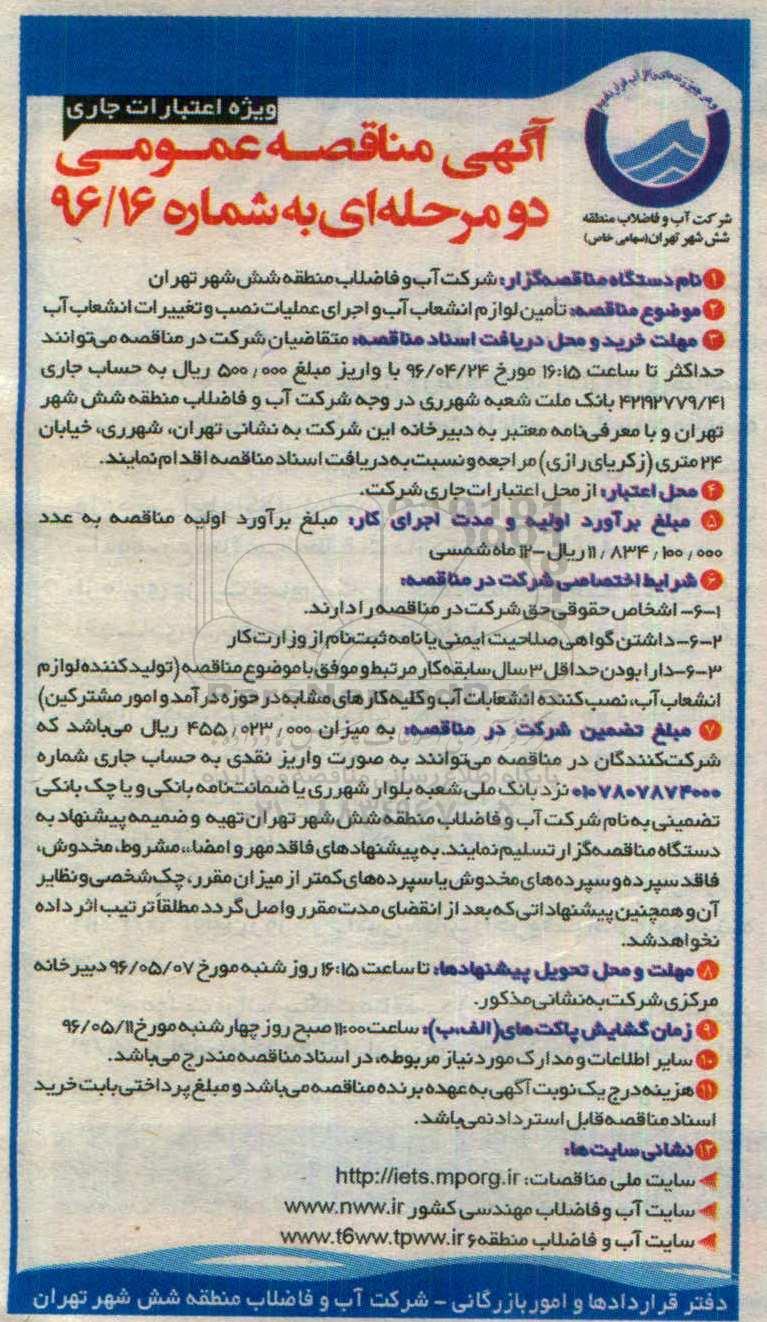 ویژه اعتبارات جاری
آگهی مناقصه عمومی
دو مرحله‌ای به شماره ۹۶/۱۶
شرکت آب و فاضلاب منطقه
شش شهر تهران (سهامی خاص)
۱ نام دستگاه مناقصه‌گزار: شرکت آب و فاضلاب منطقه شش شهر تهران
۲ موضوع مناقصه: تأمین لوازم انشعاب آب و اجرای عملیات نصب و تغییرات انشعاب آب
۳ مهلت خرید و محل دریافت اسناد مناقصه: متقاضیان شرکت در مناقصه می‌توانند
حداکثر تا ساعت ۱۶:۱۵ مورخ ۹۶/۰۴/۲۴ با واریز مبلغ ۵۰۰٫۰۰۰ ریال به حساب جاری
۴۲۱۹۲۷۷۹/۴۱ بانک ملت شعبه شهرری در وجه شرکت آب و فاضلاب منطقه شش شهر
تهران و با معرفی‌نامه معتبر به دبیرخانه این شرکت به نشانی تهران، شهرری، خیابان
۲۴ متری (زکریای رازی) مراجعه و نسبت به دریافت اسناد مناقصه اقدام نمایند.
۴ محل اعتبار: از محل اعتبارات جاری شرکت.
۵ مبلغ برآورد اولیه و مدت اجرای کار: مبلغ برآورد اولیه مناقصه به عدد
۱۱٫۸۳۴٫۱۰۰٫۰۰۰ ریال - ۱۲ ماه شمسی
۶ شرایط اختصاصی شرکت در مناقصه:
۶-۱- اشخاص حقوقی حق شرکت در مناقصه را دارند.
۶-۲- داشتن گواهی صلاحیت ایمنی یا نامه ثبت‌نام از وزارت کار
۶-۳- دارا بودن حداقل ۳ سال سابقه کار مرتبط و موفق با موضوع مناقصه (تولیدکننده لوازم
انشعاب آب، نصب کننده انشعابات آب و کلیه کارهای مشابه در حوزه درآمد و امور مشترکین)
۷ مبلغ تضمین شرکت در مناقصه: به میزان ۴۵۵٫۰۲۳٫۰۰۰ ریال می‌باشد که
شرکت‌کنندگان در مناقصه می‌توانند به صورت واریز نقدی به حساب جاری شماره
۰۱۰۷۸۰۷۸۷۴۰۰۰ نزد بانک ملی شعبه بلوار شهرری یا ضمانت‌نامه بانکی و یا چک بانکی
تضمینی به نام شرکت آب و فاضلاب منطقه شش شهر تهران تهیه و ضمیمه پیشنهاد به
دستگاه مناقصه‌گزار تسلیم نمایند. به پیشنهادهای فاقد مهر و امضاء، مشروط، مخدوش،
فاقد سپرده و سپرده‌های مخدوش یا سپرده‌های کمتر از میزان مقرر، چک شخصی و نظایر
آن و همچنین پیشنهاداتی که بعد از انقضای مدت مقرر واصل گردد مطلقاً ترتیب اثر داده
نخواهد شد.
۸ مهلت و محل تحویل پیشنهادها: تا ساعت ۱۶:۱۵ روز شنبه مورخ ۹۶/۰۵/۰۷ دبیرخانه
مرکزی شرکت به نشانی مذکور.
۹ زمان گشایش پاکت‌های (الف،ب): ساعت ۱۱:۰۰ صبح روز چهارشنبه مورخ ۹۶/۰۵/۱۱
۱۰ سایر اطلاعات و مدارک مورد نیاز مربوطه، در اسناد مناقصه مندرج می‌باشد.
۱۱ هزینه درج یک نوبت آگهی به عهده برنده مناقصه می‌باشد و مبلغ پرداختی بابت خرید
اسناد مناقصه قابل استرداد نمی‌باشد.
۱۲ نشانی سایت‌ها:
سایت ملی مناقصات: http://iets.mporg.ir
سایت آب و فاضلاب مهندسی کشور www.nww.ir
سایت آب و فاضلاب منطقه ۶ www.t6ww.tpww.ir
دفتر قراردادها و امور بازرگانی - شرکت آب و فاضلاب منطقه شش شهر تهران